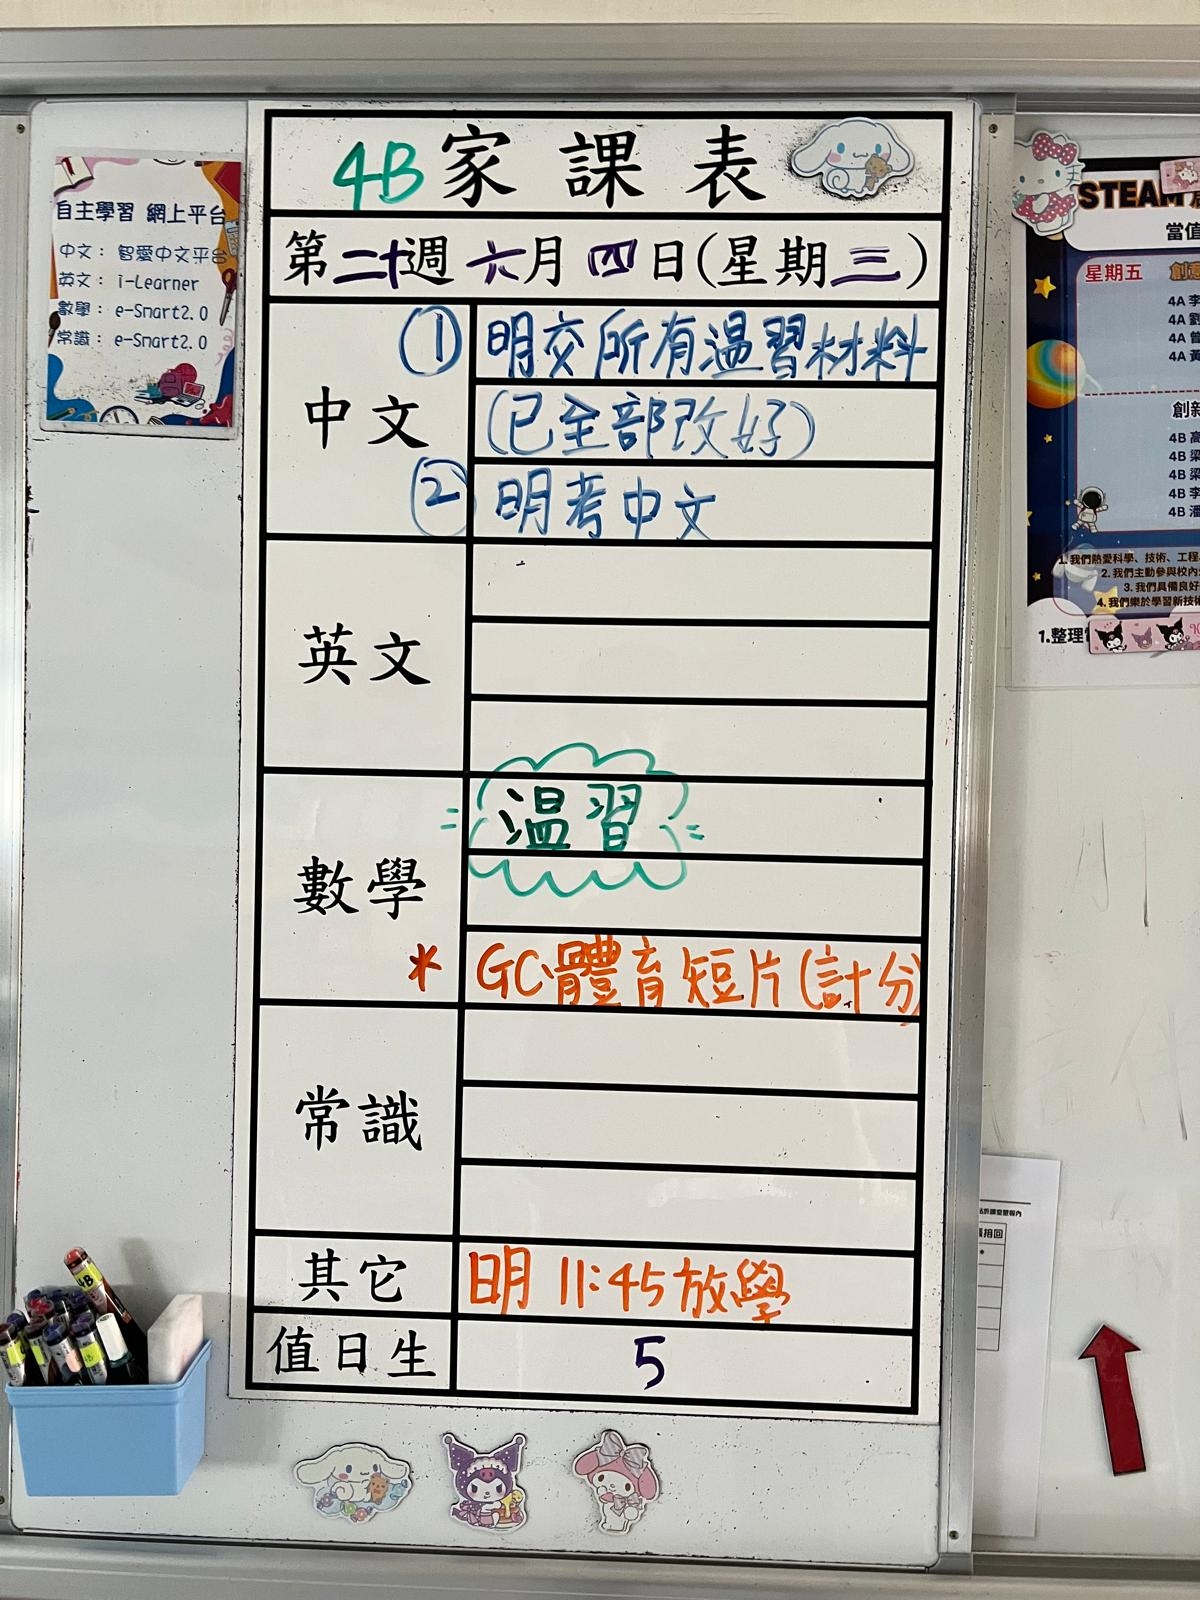 4B家課表
第二十週 六月四日(星期三)
中文
① 明交所有温習材料
(已全部改好)
② 明考中文
英文
數學
温習
* GC體育短片(計分)
常識
其它
明 11:45 放學
值日生
5
自主學習 網上平台
中文： 智愛中文平台
英文： i-Learner
數學： e-Smart2.0
常識： e-Smart2.0
STEAM
當值
星期五 創意
4A 李
4A 劉
4A 曾
4A 黃
創新
4B 高
4B 梁
4B 梁
4B 李
4B 潘
1. 我們熱愛科學、技術、工程
2. 我們主動參與校內
3. 我們具備良好
4. 我們樂於學習新技術
1.整理
4B